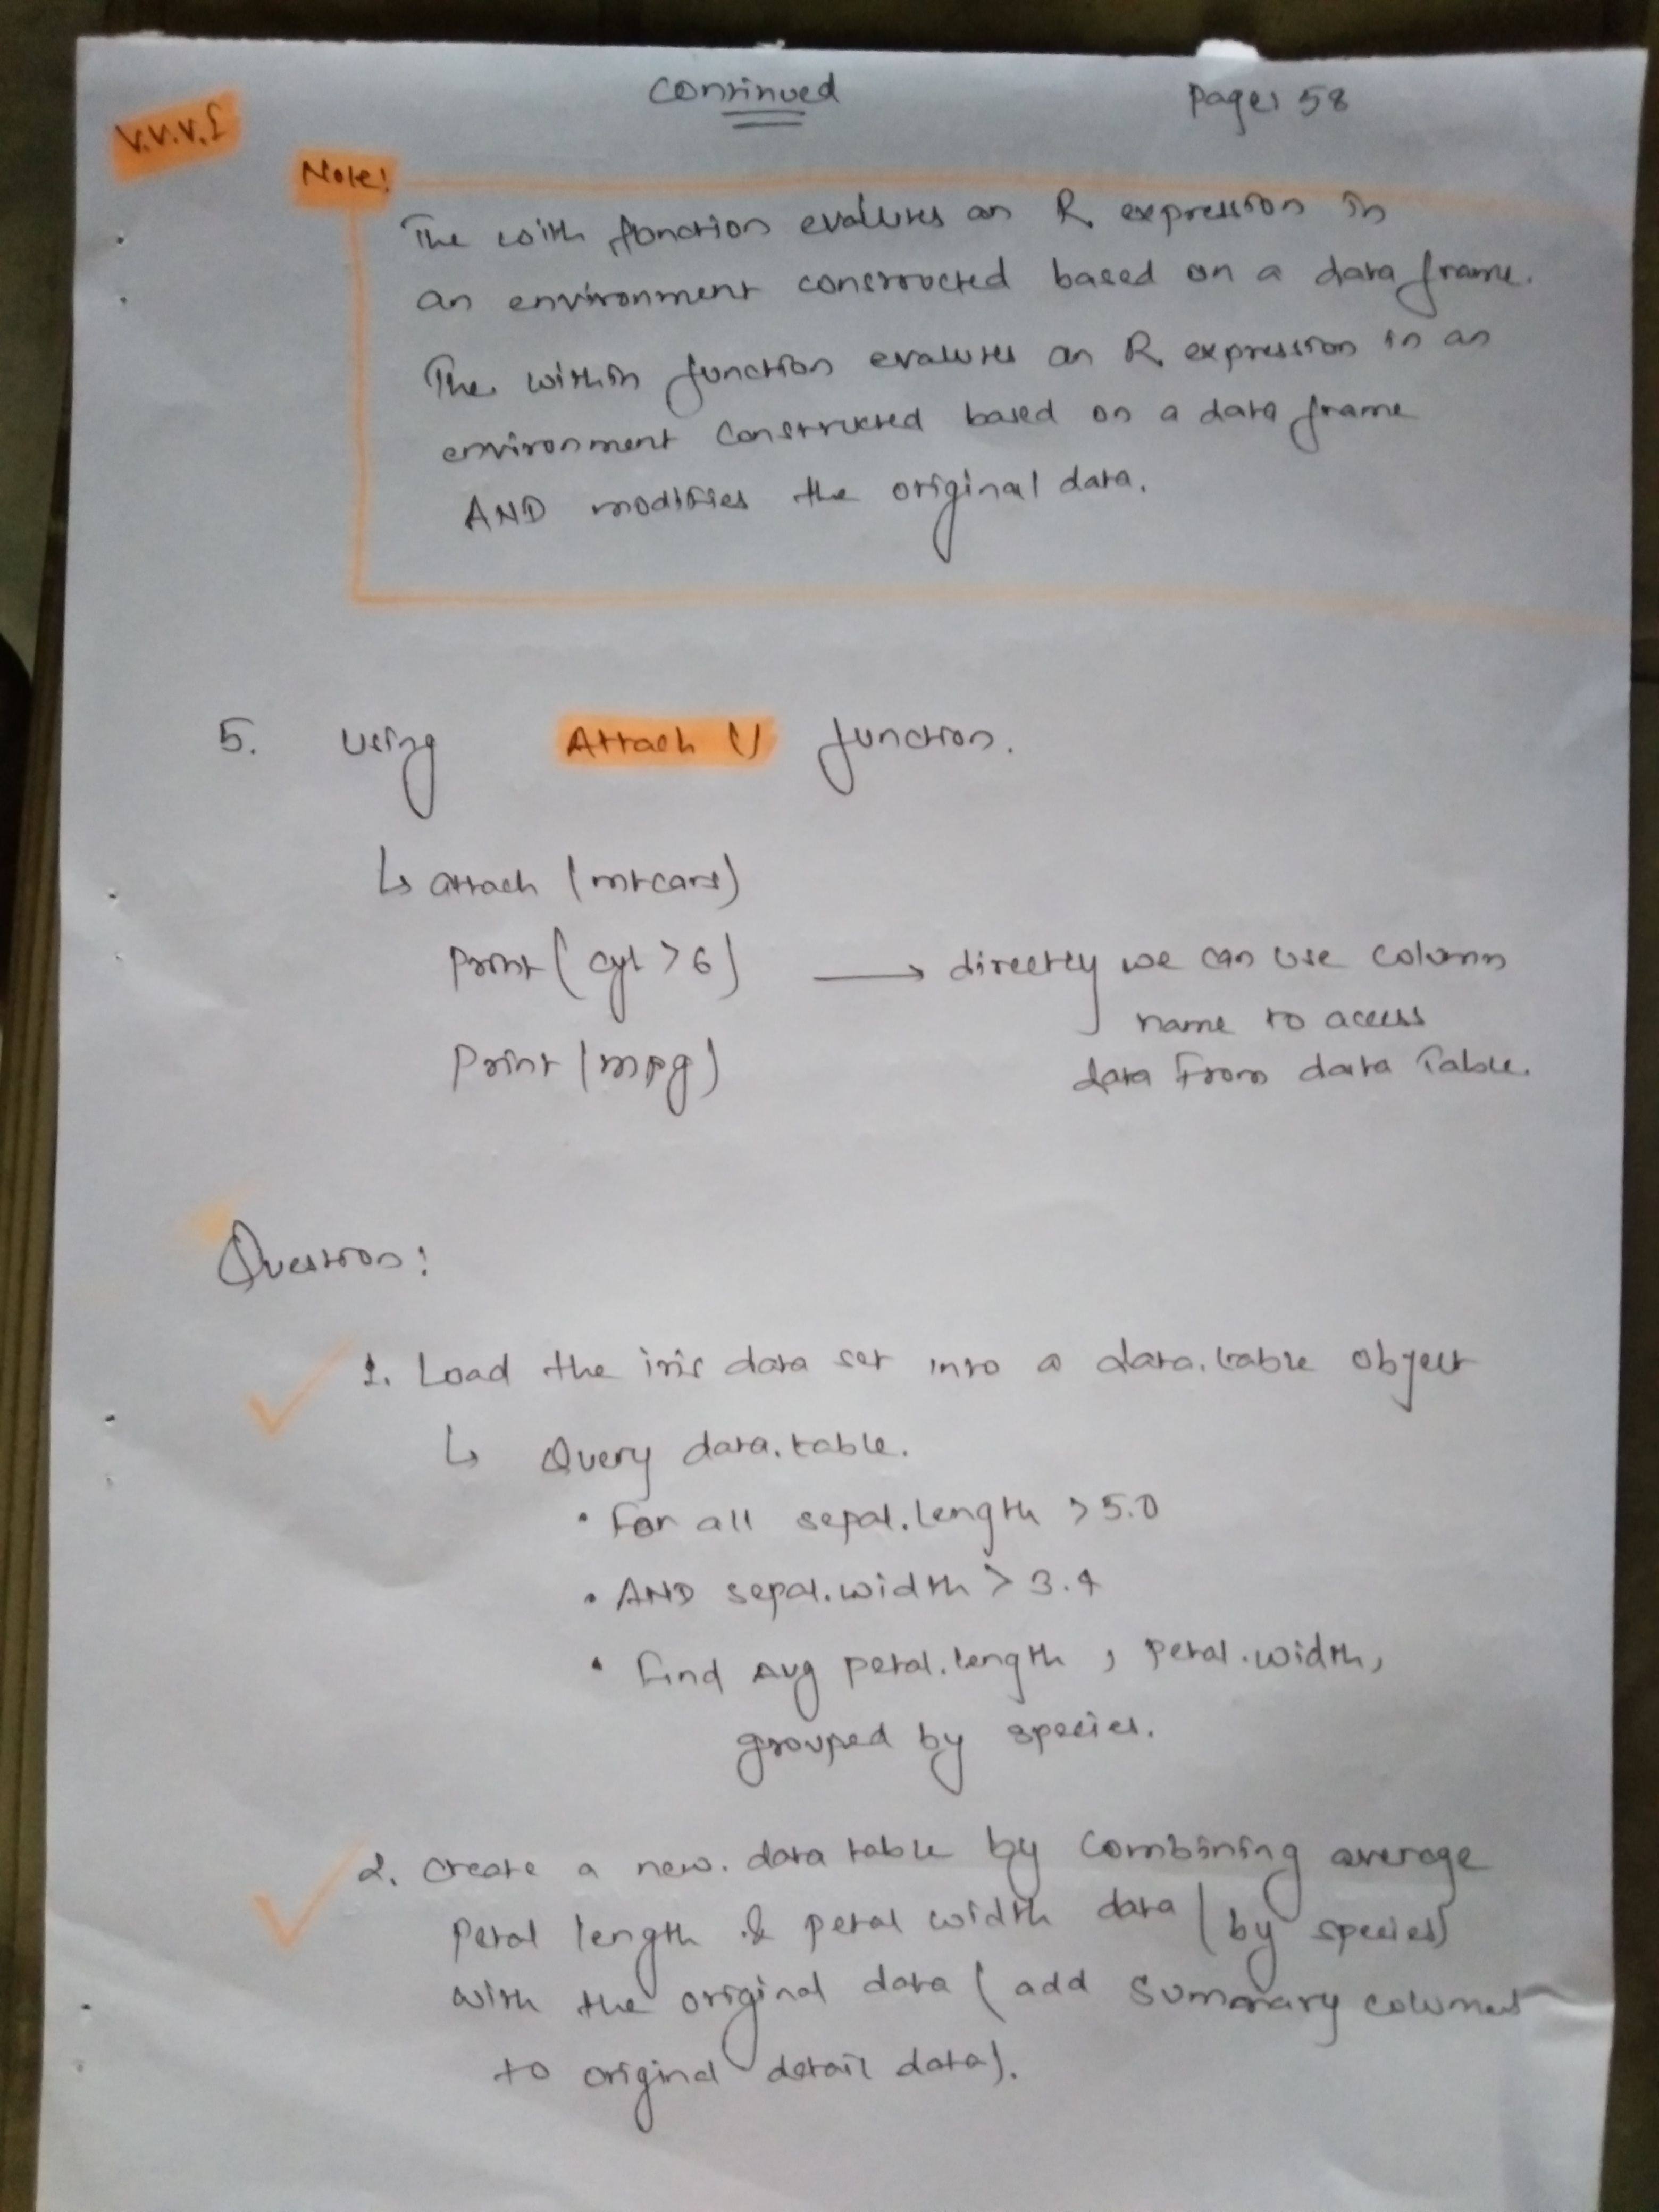 Continued
Page: 58
V.V.V.I
Note:
The with function evalutes an R expression in
an environment constructed based on a data frame.
The within function evalutes an R expression in an
environment constructed based on a data frame
AND modifies the original data.
5. Using Attach () function.
↳ attach (mtcars)
Print ( cyl > 6 ) → directly we can use column
name to access
Print (mpg)
data from data Table.
Question:
1. Load the iris data set into a data.table object
↳ Query data.table.
• For all sepal.length > 5.0
• AND sepal.width > 3.4
• Find Avg petal.length, petal.width,
grouped by species.
2. Create a new. data table by combining average
Petal length & petal width data (by species)
with the original data (add summary columns
to original detail data).